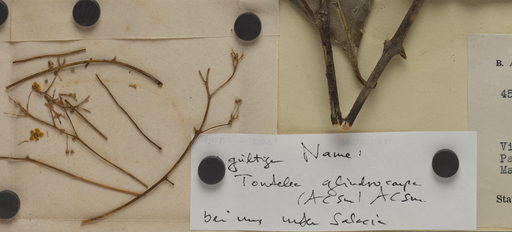 gültiger Name:
Tontelea cylindrocarpa
(ACSm) ACSm.
bei uns unter Salacia
B. A
45
Vi
Pa
Ma
Stat